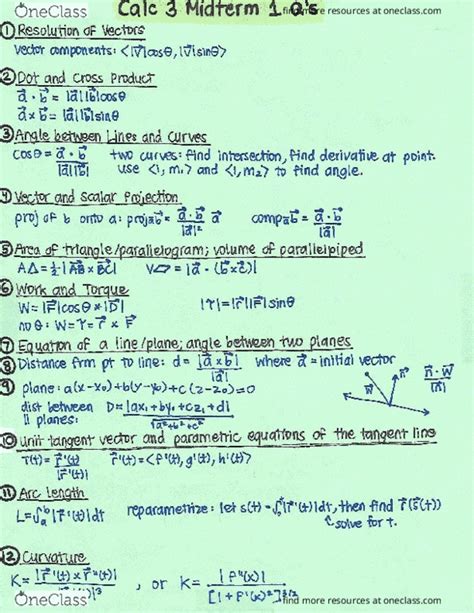 OneClass
Calc 3 Midterm 1 Q's
find more resources at oneclass.com
① Resolution of Vectors
Vector components: <|v⃗|cosθ, |v⃗|sinθ>
② Dot and Cross Product
a⃗ · b⃗ = |a⃗||b⃗|cosθ
a⃗ x b⃗ = |a⃗||b⃗|sinθ
③ Angle between Lines and Curves
cosθ = a⃗ · b⃗ / |a⃗||b⃗| two curves: find intersection, find derivative at point.
use <1, m₁> and <1, m₂> to find angle.
④ Vector and Scalar Projection
proj of b onto a: proj_a b⃗ = a⃗ · b⃗ / |a⃗|² a⃗ comp_a b⃗ = a⃗ · b⃗ / |a⃗|
⑤ Area of triangle/parallelogram; volume of parallelpiped
A△ = ½|AB⃗ x BC⃗| V▱ = |a⃗ · (b⃗ x c⃗)|
⑥ Work and Torque
W = |F⃗|cosθ * |D⃗| |τ| = |r⃗||F⃗|sinθ
no θ: W = τ = r⃗ x F⃗
⑦ Equation of a line/plane; angle between two planes
⑧ Distance from pt to line: d = |a⃗ x b⃗| / |a⃗| where a⃗ = initial vector
⑨ plane: a(x-x₀)+b(y-y₀)+c(z-z₀)=0
dist between || planes: D = |ax₁+by₁+cz₁+d| / √a²+b²+c²
n⃗
W⃗
n⃗ · W⃗ / |n⃗|
⑩ unit tangent vector and parametric equations of the tangent line
T(t) = r⃗'(t) / |r⃗'(t)| r⃗'(t) = <f'(t), g'(t), h'(t)>
⑪ Arc length
L = ∫ₐᵇ |r⃗'(t)|dt reparametrize: let s(t) = ∫₀ᵗ |r⃗'(t)|dt, then find r⃗(s(t))
solve for t.
⑫ Curvature
K = |r⃗'(t) x r⃗''(t)| / |r⃗'(t)|³, or K = |f''(x)| / [1+f'(x)²]^3/2
OneClass
find more resources at oneclass.com